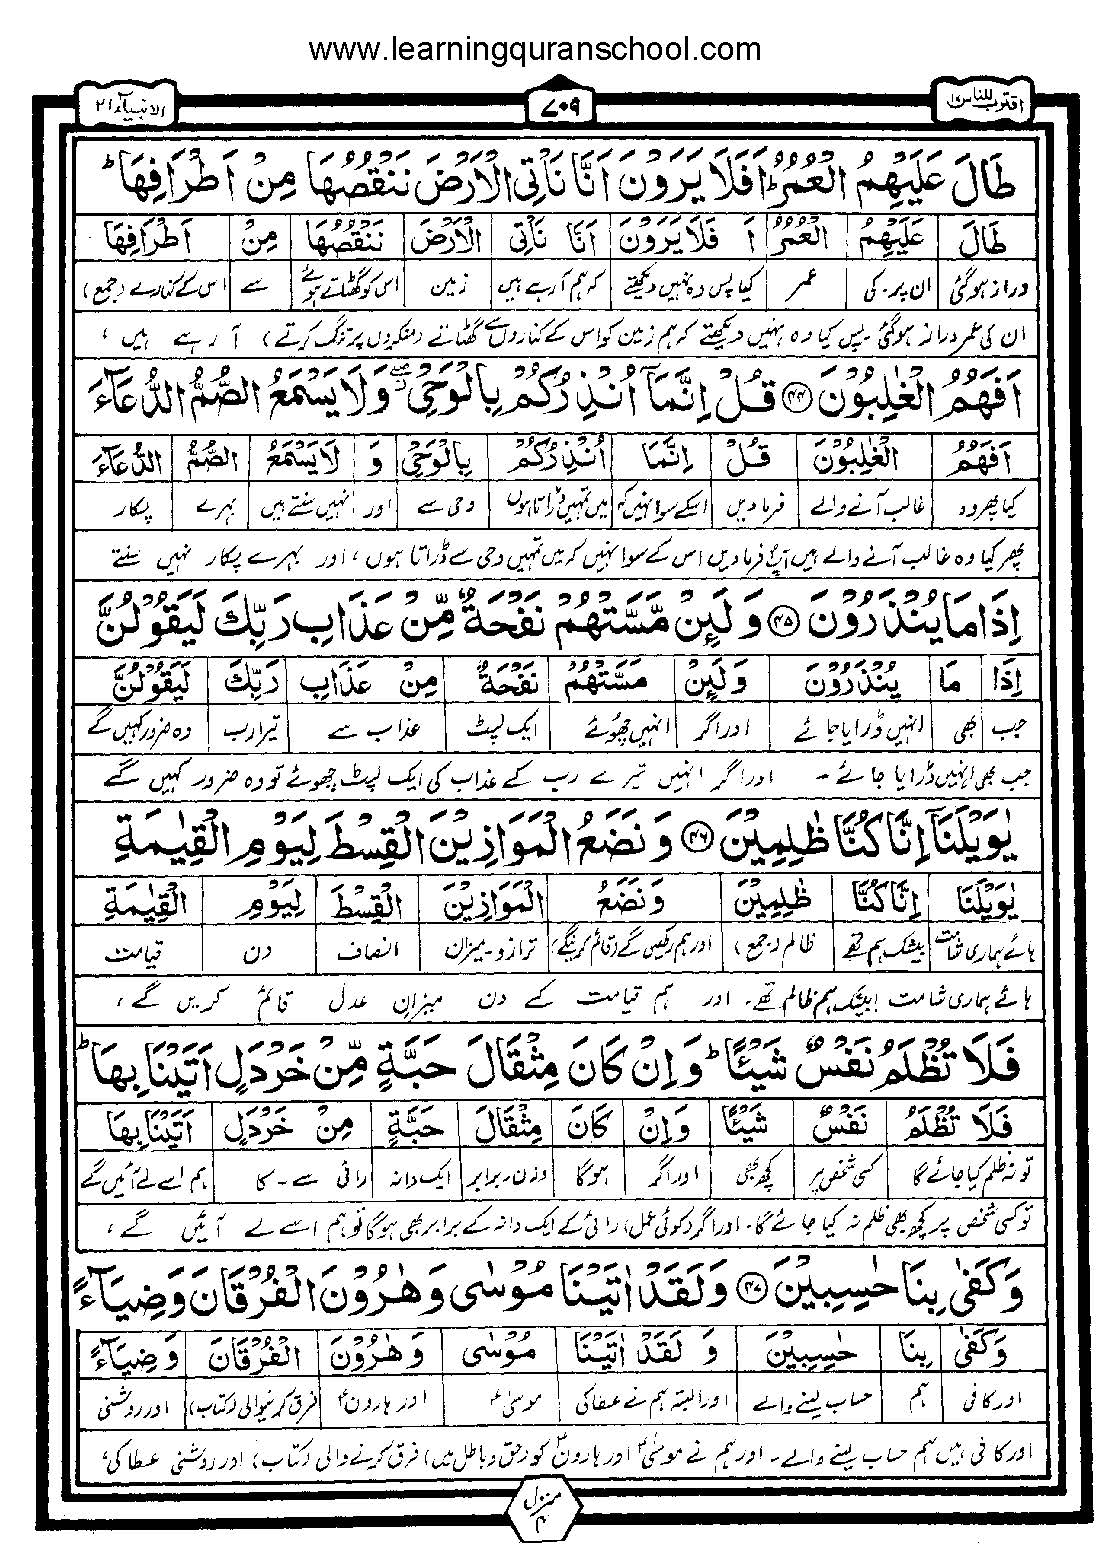 www.learningquranschool.com
اقترب للناس ۱۷ ۷۰۹ الانبیاء ۲۱
طَالَ عَلَيْهِمُ الْعُمُرُ ؕ اَفَلَا يَرَوْنَ اَنَّا نَاْتِي الْاَرْضَ نَنْقُصُهَا مِنْ اَطْرَافِهَا ؕ
طَالَ عَلَيْهِمُ الْعُمُرُ اَ فَلَا يَرَوْنَ اَنَّا نَاْتِي الْاَرْضَ نَنْقُصُهَا مِنْ اَطْرَافِهَا
دراز ہوگئی ان پر۔ کی عمر کیا پس وہ نہیں دیکھتے کہ ہم آرہے ہیں زمین اس کو گھٹاتے ہوئے سے اس کے کنارے (جمع)
ان کی عمر دراز ہوگئی پس کیا وہ نہیں دیکھتے کہ ہم زمین کو اس کے کناروں سے گھٹاتے (منکروں پر تنگ کرتے) آرہے ہیں ،
اَفَهُمُ الْغٰلِبُوْنَ ۝۴۴ قُلْ اِنَّمَاۤ اُنْذِرُكُمْ بِالْوَحْيِ ۖ وَلَا يَسْمَعُ الصُّمُّ الدُّعَآءَ
اَفَهُمُ الْغٰلِبُوْنَ قُلْ اِنَّمَا اُنْذِرُكُمْ بِالْوَحْيِ وَ لَا يَسْمَعُ الصُّمُّ الدُّعَآءَ
کیا پھر وہ غالب آنے والے فرمادیں اسکے سوا نہیں کہ میں تمہیں ڈراتا ہوں وحی سے اور نہیں سنتے ہیں بہرے پکار
پھر کیا وہ غالب آنے والے ہیں آپؐ فرمادیں اس کے سوا نہیں کہ میں تمہیں وحی سے ڈراتا ہوں ، اور بہرے پکار نہیں سنتے
اِذَا مَا يُنْذَرُوْنَ ۝۴۵ وَلَئِنْ مَّسَّتْهُمْ نَفْحَةٌ مِّنْ عَذَابِ رَبِّكَ لَيَقُوْلُنَّ
اِذَا مَا يُنْذَرُوْنَ وَلَئِنْ مَسَّتْهُمْ نَفْحَةٌ مِنْ عَذَابِ رَبِّكَ لَيَقُوْلُنَّ
جب بھی انہیں ڈرایا جائے اور اگر انہیں چھوئے ایک لپٹ عذاب سے تیرا رب وہ ضرور کہیں گے
جب بھی انہیں ڈرایا جائے ۔ اور اگر انہیں تیرے رب کے عذاب کی ایک لپٹ چھوئے تو وہ ضرور کہیں گے
يٰوَيْلَنَاۤ اِنَّا كُنَّا ظٰلِمِيْنَ ۝۴۶ وَنَضَعُ الْمَوَازِيْنَ الْقِسْطَ لِيَوْمِ الْقِيٰمَةِ
يٰوَيْلَنَا اِنَّا كُنَّا ظٰلِمِيْنَ وَنَضَعُ الْمَوَازِيْنَ الْقِسْطَ لِيَوْمِ الْقِيٰمَةِ
ہائے ہماری شامت بیشک ہم تھے ظالم (جمع) اور ہم رکھیں گے (قائم کرینگے) ترازو۔ میزان انصاف دن قیامت
ہائے ہماری شامت ! بیشک ہم ظالم تھے۔ اور ہم قیامت کے دن میزانِ عدل قائم کریں گے ،
فَلَا تُظْلَمُ نَفْسٌ شَيْئًا ؕ وَاِنْ كَانَ مِثْقَالَ حَبَّةٍ مِّنْ خَرْدَلٍ اَتَيْنَا بِهَا ؕ
فَلَا تُظْلَمُ نَفْسٌ شَيْئًا وَاِنْ كَانَ مِثْقَالَ حَبَّةٍ مِنْ خَرْدَلٍ اَتَيْنَا بِهَا
تو نہ ظلم کیا جائے گا کسی شخص پر کچھ بھی اور اگر ہوگا وزن۔ برابر ایک دانہ رائی سے۔ کا ہم اسے لے آئیں گے
تو کسی شخص پر کچھ بھی ظلم نہ کیا جائے گا۔ اور اگر (کوئی عمل) رائی کے ایک دانہ کے برابر بھی ہوگا تو ہم اسے لے آئیں گے ،
وَكَفٰى بِنَا حٰسِبِيْنَ ۝۴۷ وَلَقَدْ اٰتَيْنَا مُوْسٰى وَهٰرُوْنَ الْفُرْقَانَ وَضِيَآءً
وَكَفٰى بِنَا حٰسِبِيْنَ وَ لَقَدْ اٰتَيْنَا مُوْسٰى وَهٰرُوْنَ الْفُرْقَانَ وَضِيَآءً
اور کافی ہم حساب لینے والے اور البتہ ہم نے عطا کی موسیٰؑ اور ہارونؑ فرق کرنیوالی (کتاب) اور روشنی
اور کافی ہیں ہم حساب لینے والے۔ اور ہم نے موسیٰؑ اور ہارونؑ کو (حق و باطل میں) فرق کرنے والی (کتاب) اور روشنی عطا کی ،
منزل ۴